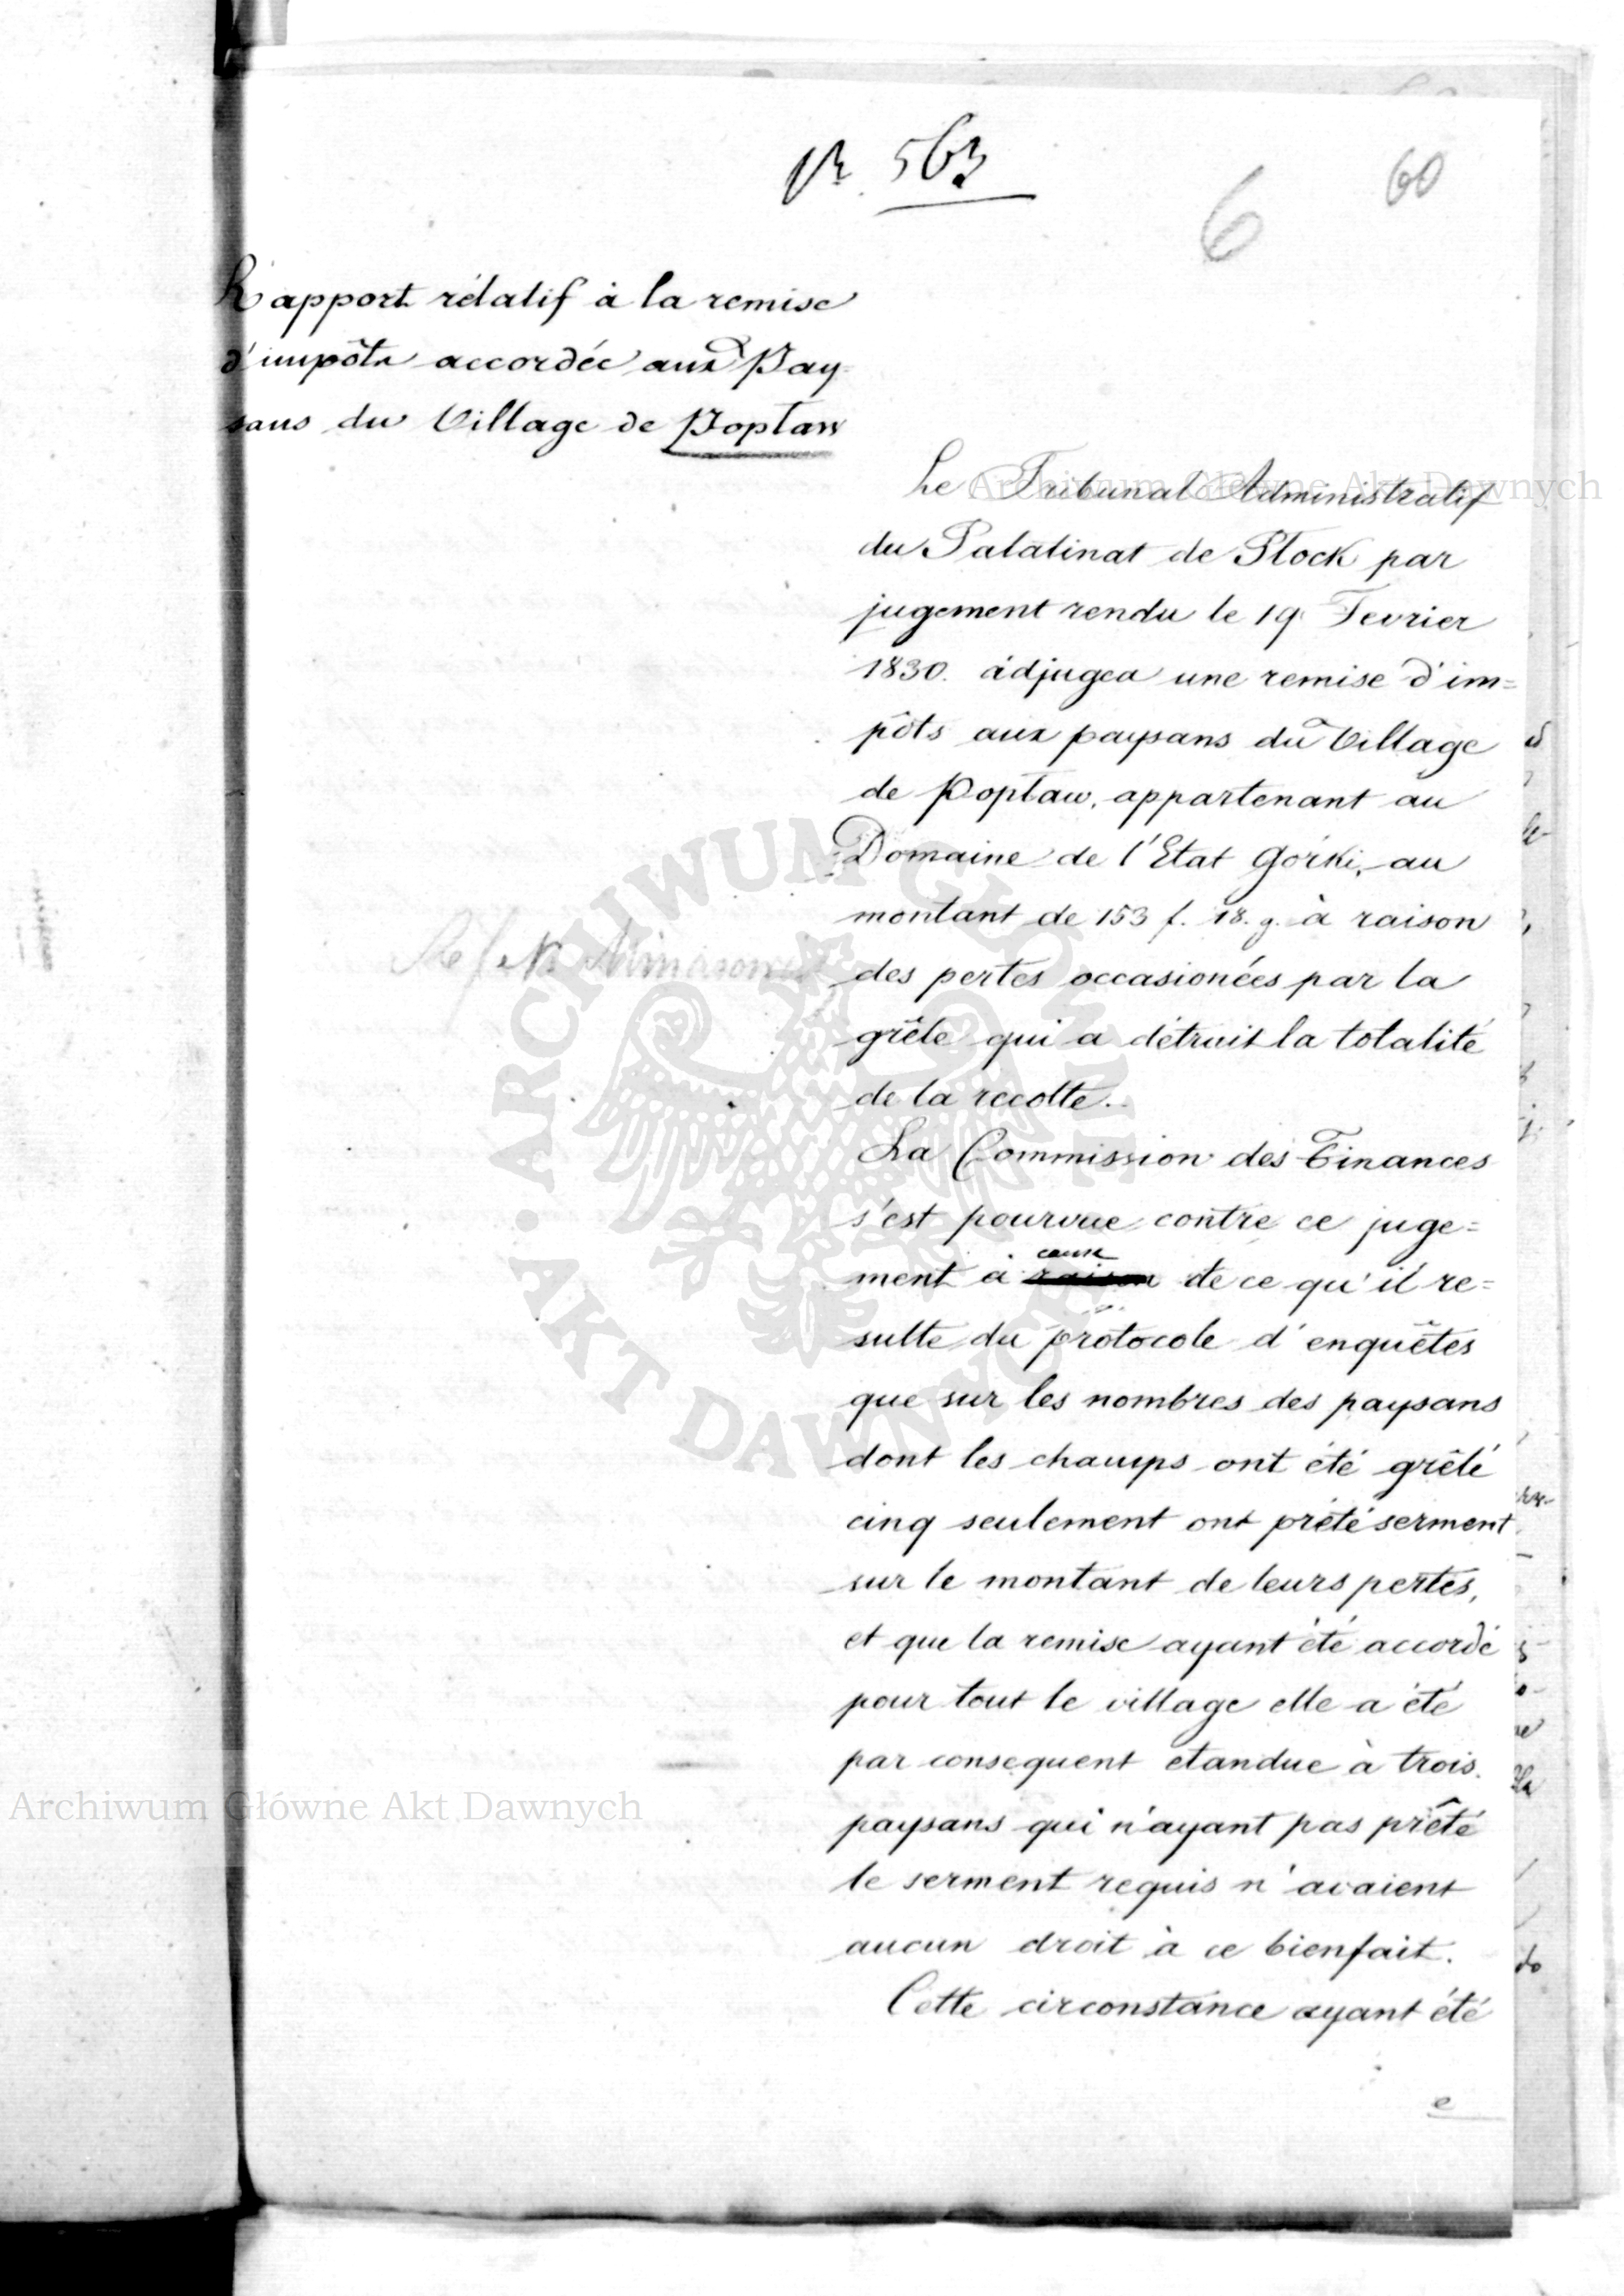 Nr. 563
6
60
Rapport rélatif à la remise
d'impôts accordée aux Pay=
sans du Village de Popław
Le Tribunal Administratif
du Palatinat de Płock par
jugement rendu le 19 Fevrier
1830. adjugea une remise d'im=
pôts aux paysans du Village
de Popław, appartenant au
Domaine de l'Etat Górki, au
montant de 153 f. 18. g. à raison
des pertes occasionées par la
grêle qui a détruit la totalité
de la recolte.
La Commission des Finances
s'est pourvue contre ce juge=
cause
ment à raison de ce qu'il re=
sulte du protocole d'enquêtes
que sur les nombres des paysans
dont les champs ont été grêlé
cinq seulement ont prêté serment
sur le montant de leurs pertes,
et que la remise ayant été accordé
pour tout le village elle a été
par consequent etandue à trois
paysans qui n'ayant pas prêté
le serment requis n'avaient
aucun droit à ce bienfait.
Cette circonstance ayant été
Archiwum Główne Akt Dawnych
Archiwum Główne Akt Dawnych
ARCHIWUM GŁÓWNE AKT DAWNYCH